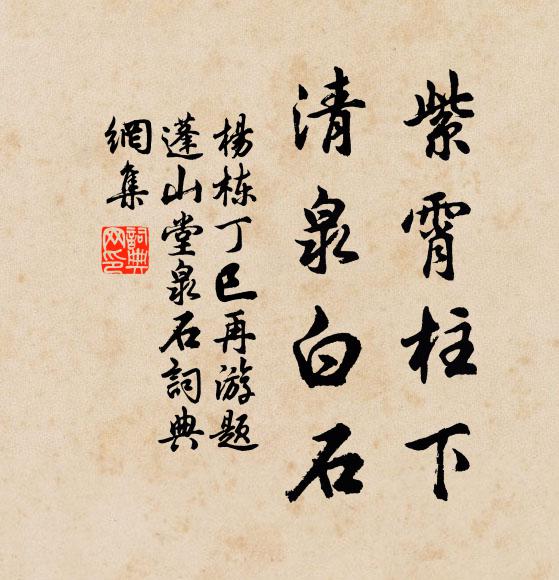 紫霄柱下
清泉白石
杨栋丁巳再游题
蓬山堂泉石詞典
網集
詞典
网印